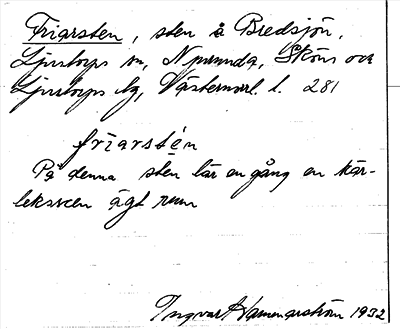 Friarsten, sten å Bredsjön,
Ljustorps sn, Njurunda, Sköns och
Ljustorps tg, Västernorrl. l. 281
friarstén
På denna sten lär en gång en kär-
leksscen ägt rum
Ingvar Hammarström 1932